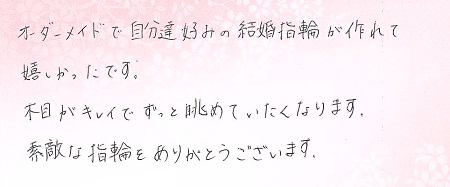 オーダーメイドで自分達好みの結婚指輪が作れて
嬉しかったです。
木目がキレイでずっと眺めていたくなります。
素敵な指輪をありがとうございます。